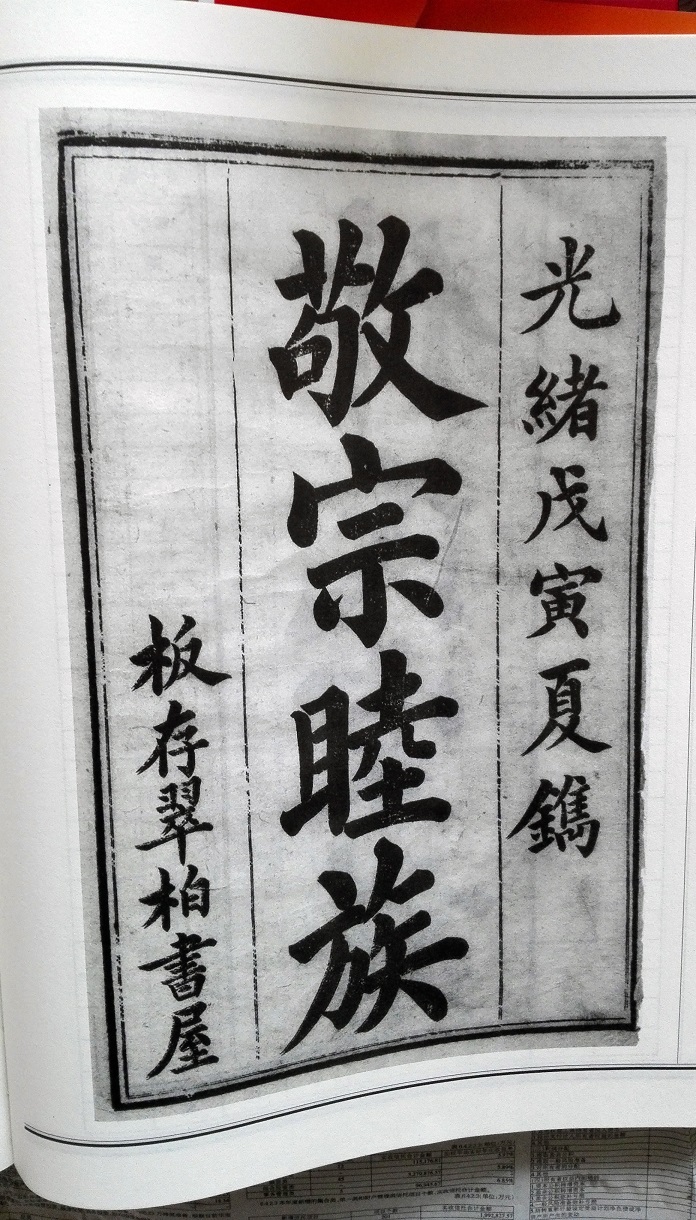 光緒戊寅夏鐫
敬宗睦族
板存翠柏書屋